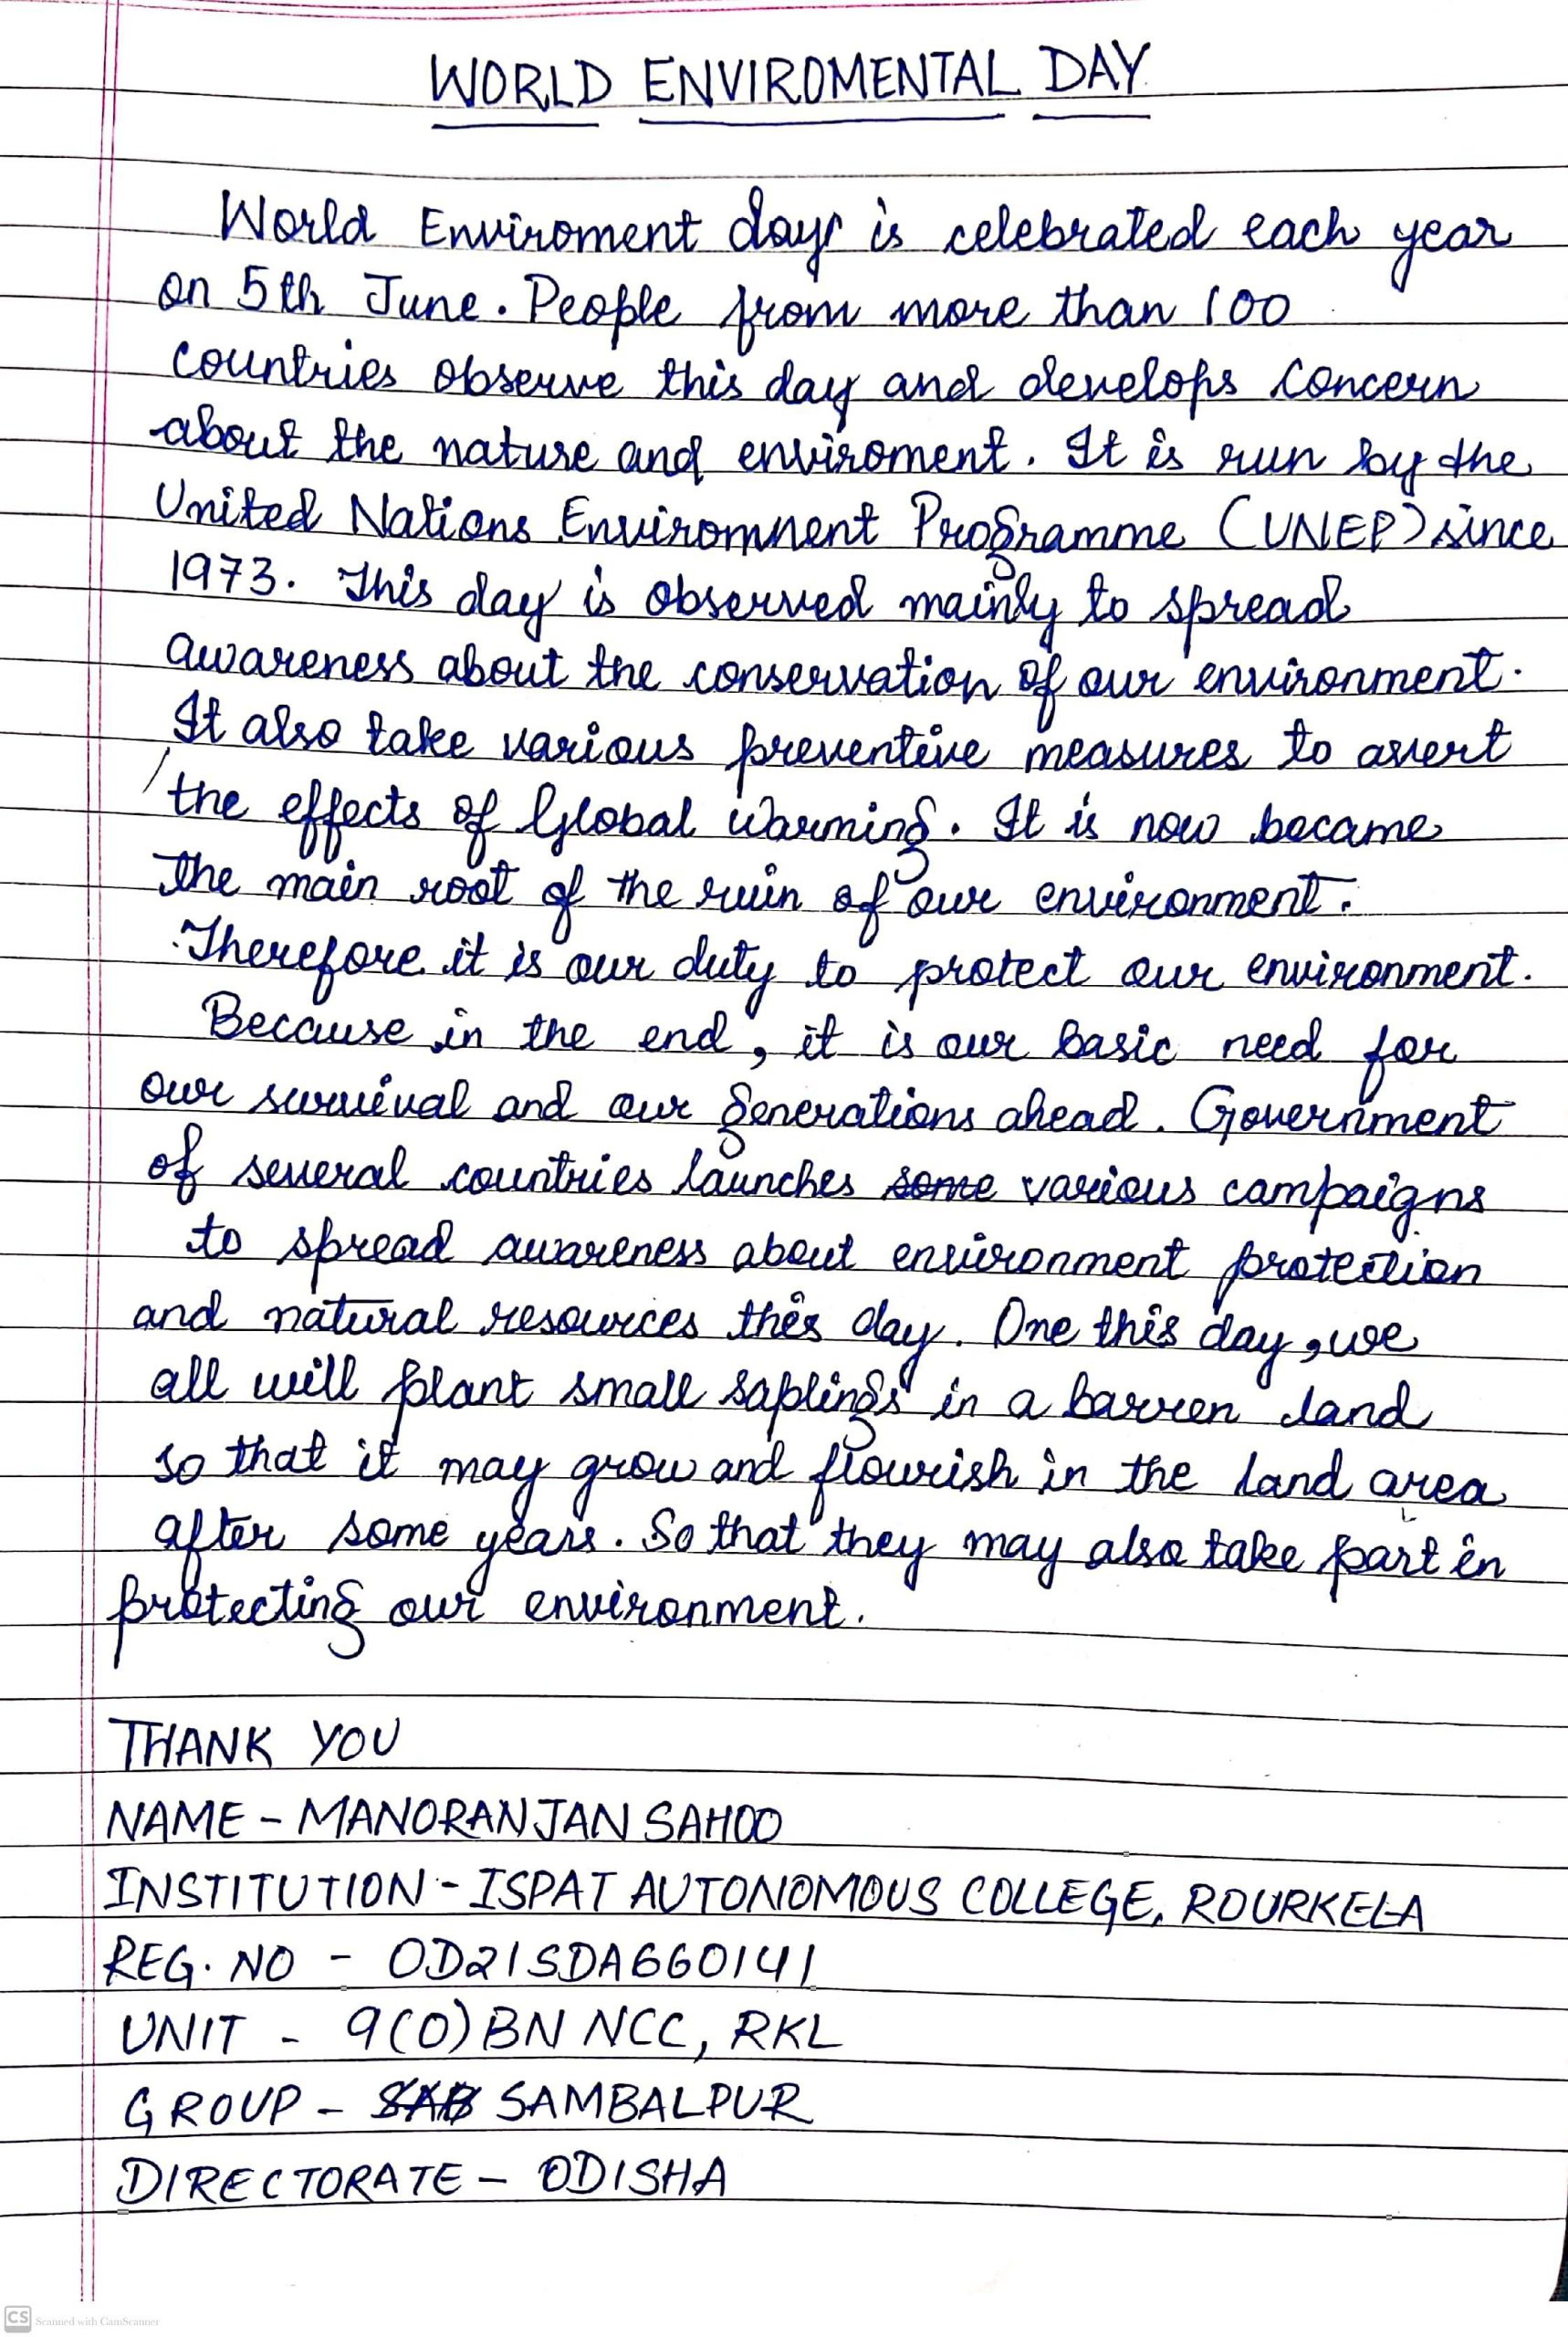 WORLD ENVIROMENTAL DAY
World Enviroment days is celebrated each year
on 5th June. People from more than 100
countries observe this day and develops concern
about the nature and enviroment. It is run by the
United Nations Enviromnent Programme (UNEP) since
1973. This day is observed mainly to spread
awareness about the conservation of our environment.
It also take various preventive measures to avert
the effects of Global warming. It is now became
the main root of the ruin of our environment.
Therefore it is our duty to protect our environment.
Because in the end, it is our basic need for
our survival and our generations ahead. Government
of several countries launches some various campaigns
to spread awareness about environment protection
and natural resources this day. One this day, we
all will plant small saplings in a barren land
so that it may grow and flourish in the land area
after some years. So that they may also take part in
protecting our environment.
THANK YOU
NAME - MANORANJAN SAHOO
INSTITUTION - ISPAT AUTONOMOUS COLLEGE, ROURKELA
REG. NO - OD21SDA660141
UNIT - 9(O) BN NCC, RKL
GROUP - SAB SAMBALPUR
DIRECTORATE - ODISHA
CS Scanned with CamScanner